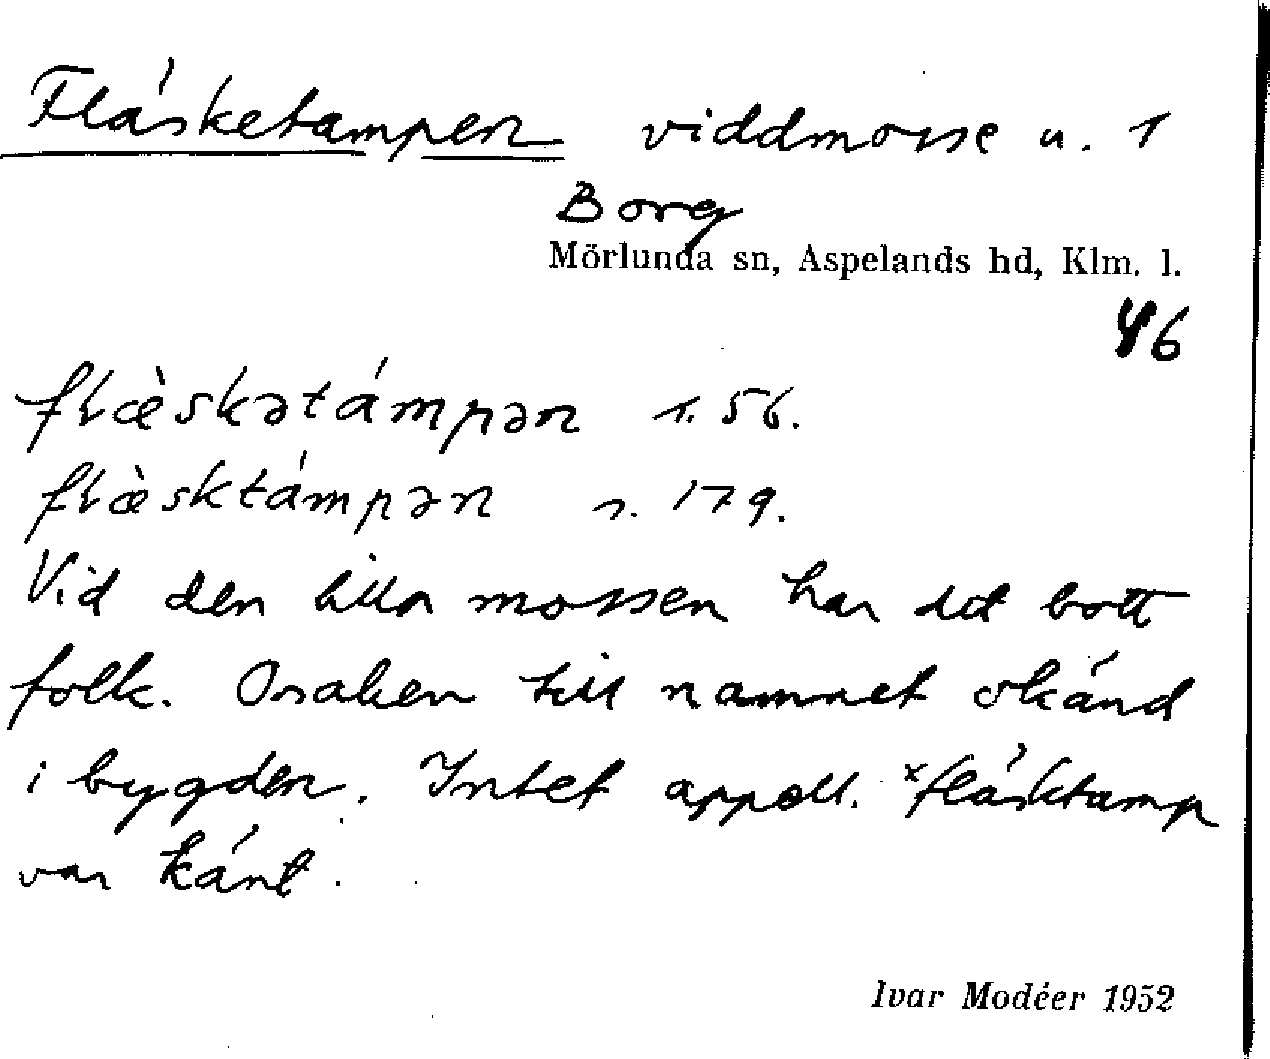 Fläsketampen viddmosse u. 1
Borg
Mörlunda sn, Aspelands hd, Klm. l.
46
flæ̀skətámpən s. 56.
flæ̀sktámpən s. 179.
Vid den lilla mossen har det bott
folk. Orsaken till namnet okänd
i bygden. Intet appell. ×fläsktamp
var känt.
Ivar Modéer 1952